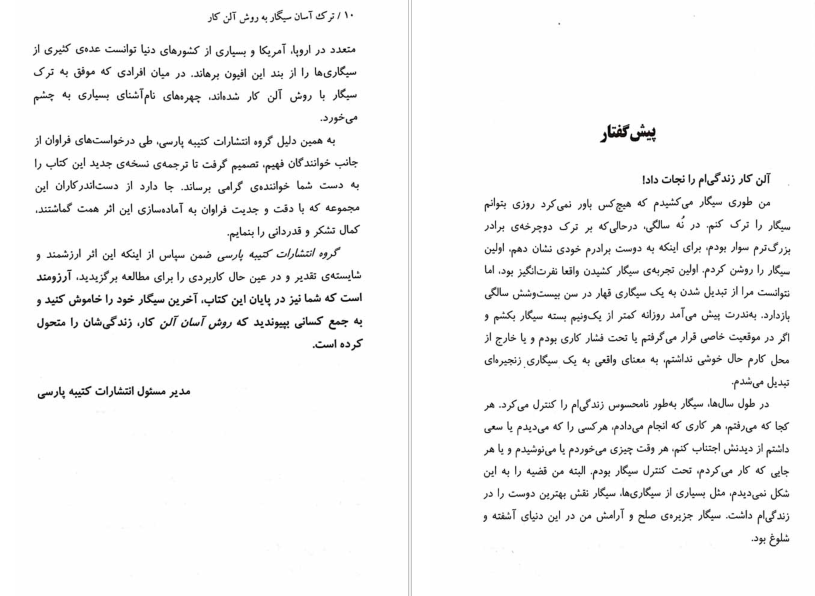 ۱۰ / ترک آسان سیگار به روش آلن کار
متعدد در اروپا، آمریکا و بسیاری از کشورهای دنیا توانست عده‌ی کثیری از
سیگاری‌ها را از بند این افیون برهاند. در میان افرادی که موفق به ترک
سیگار با روش آلن کار شده‌اند، چهره‌های نام‌آشنای بسیاری به چشم
می‌خورد.
به همین دلیل گروه انتشارات کتیبه پارسی، طی درخواست‌های فراوان از
جانب خوانندگان فهیم، تصمیم گرفت تا ترجمه‌ی نسخه‌ی جدید این کتاب را
به دست شما خواننده‌ی گرامی برساند. جا دارد از دست‌اندرکاران این
مجموعه که با دقت و جدیت فراوان به آماده‌سازی این اثر همت گماشتند،
کمال تشکر و قدردانی را بنمایم.
گروه انتشارات کتیبه پارسی ضمن سپاس از اینکه این اثر ارزشمند و
شایسته‌ی تقدیر و در عین حال کاربردی را برای مطالعه برگزیدید، آرزومند
است که شما نیز در پایان این کتاب، آخرین سیگار خود را خاموش کنید و
به جمع کسانی بپیوندید که روش آسان آلن کار، زندگی‌شان را متحول
کرده است.
مدیر مسئول انتشارات کتیبه پارسی
پیش‌گفتار
آلن کار زندگی‌ام را نجات داد!
من طوری سیگار می‌کشیدم که هیچ‌کس باور نمی‌کرد روزی بتوانم
سیگار را ترک کنم. در نُه سالگی، درحالی‌که بر ترک دوچرخه‌ی برادر
بزرگ‌ترم سوار بودم، برای اینکه به دوست برادرم خودی نشان دهم، اولین
سیگار را روشن کردم. اولین تجربه‌ی سیگار کشیدن واقعا نفرت‌انگیز بود، اما
نتوانست مرا از تبدیل شدن به یک سیگاری قهار در سن بیست‌وشش سالگی
بازدارد. به‌ندرت پیش می‌آمد روزانه کمتر از یک‌ونیم بسته سیگار بکشم و
اگر در موقعیت خاصی قرار می‌گرفتم یا تحت فشار کاری بودم و یا خارج از
محل کارم حال خوشی نداشتم، به معنای واقعی به یک سیگاری زنجیره‌ای
تبدیل می‌شدم.
در طول سال‌ها، سیگار به‌طور نامحسوس زندگی‌ام را کنترل می‌کرد. هر
کجا که می‌رفتم، هر کاری که انجام می‌دادم، هرکسی را که می‌دیدم یا سعی
داشتم از دیدنش اجتناب کنم، هر وقت چیزی می‌خوردم یا می‌نوشیدم و یا هر
جایی که کار می‌کردم، تحت کنترل سیگار بودم. البته من قضیه را به این
شکل نمی‌دیدم، مثل بسیاری از سیگاری‌ها، سیگار نقش بهترین دوست را در
زندگی‌ام داشت. سیگار جزیره‌ی صلح و آرامش من در این دنیای آشفته و
شلوغ بود.